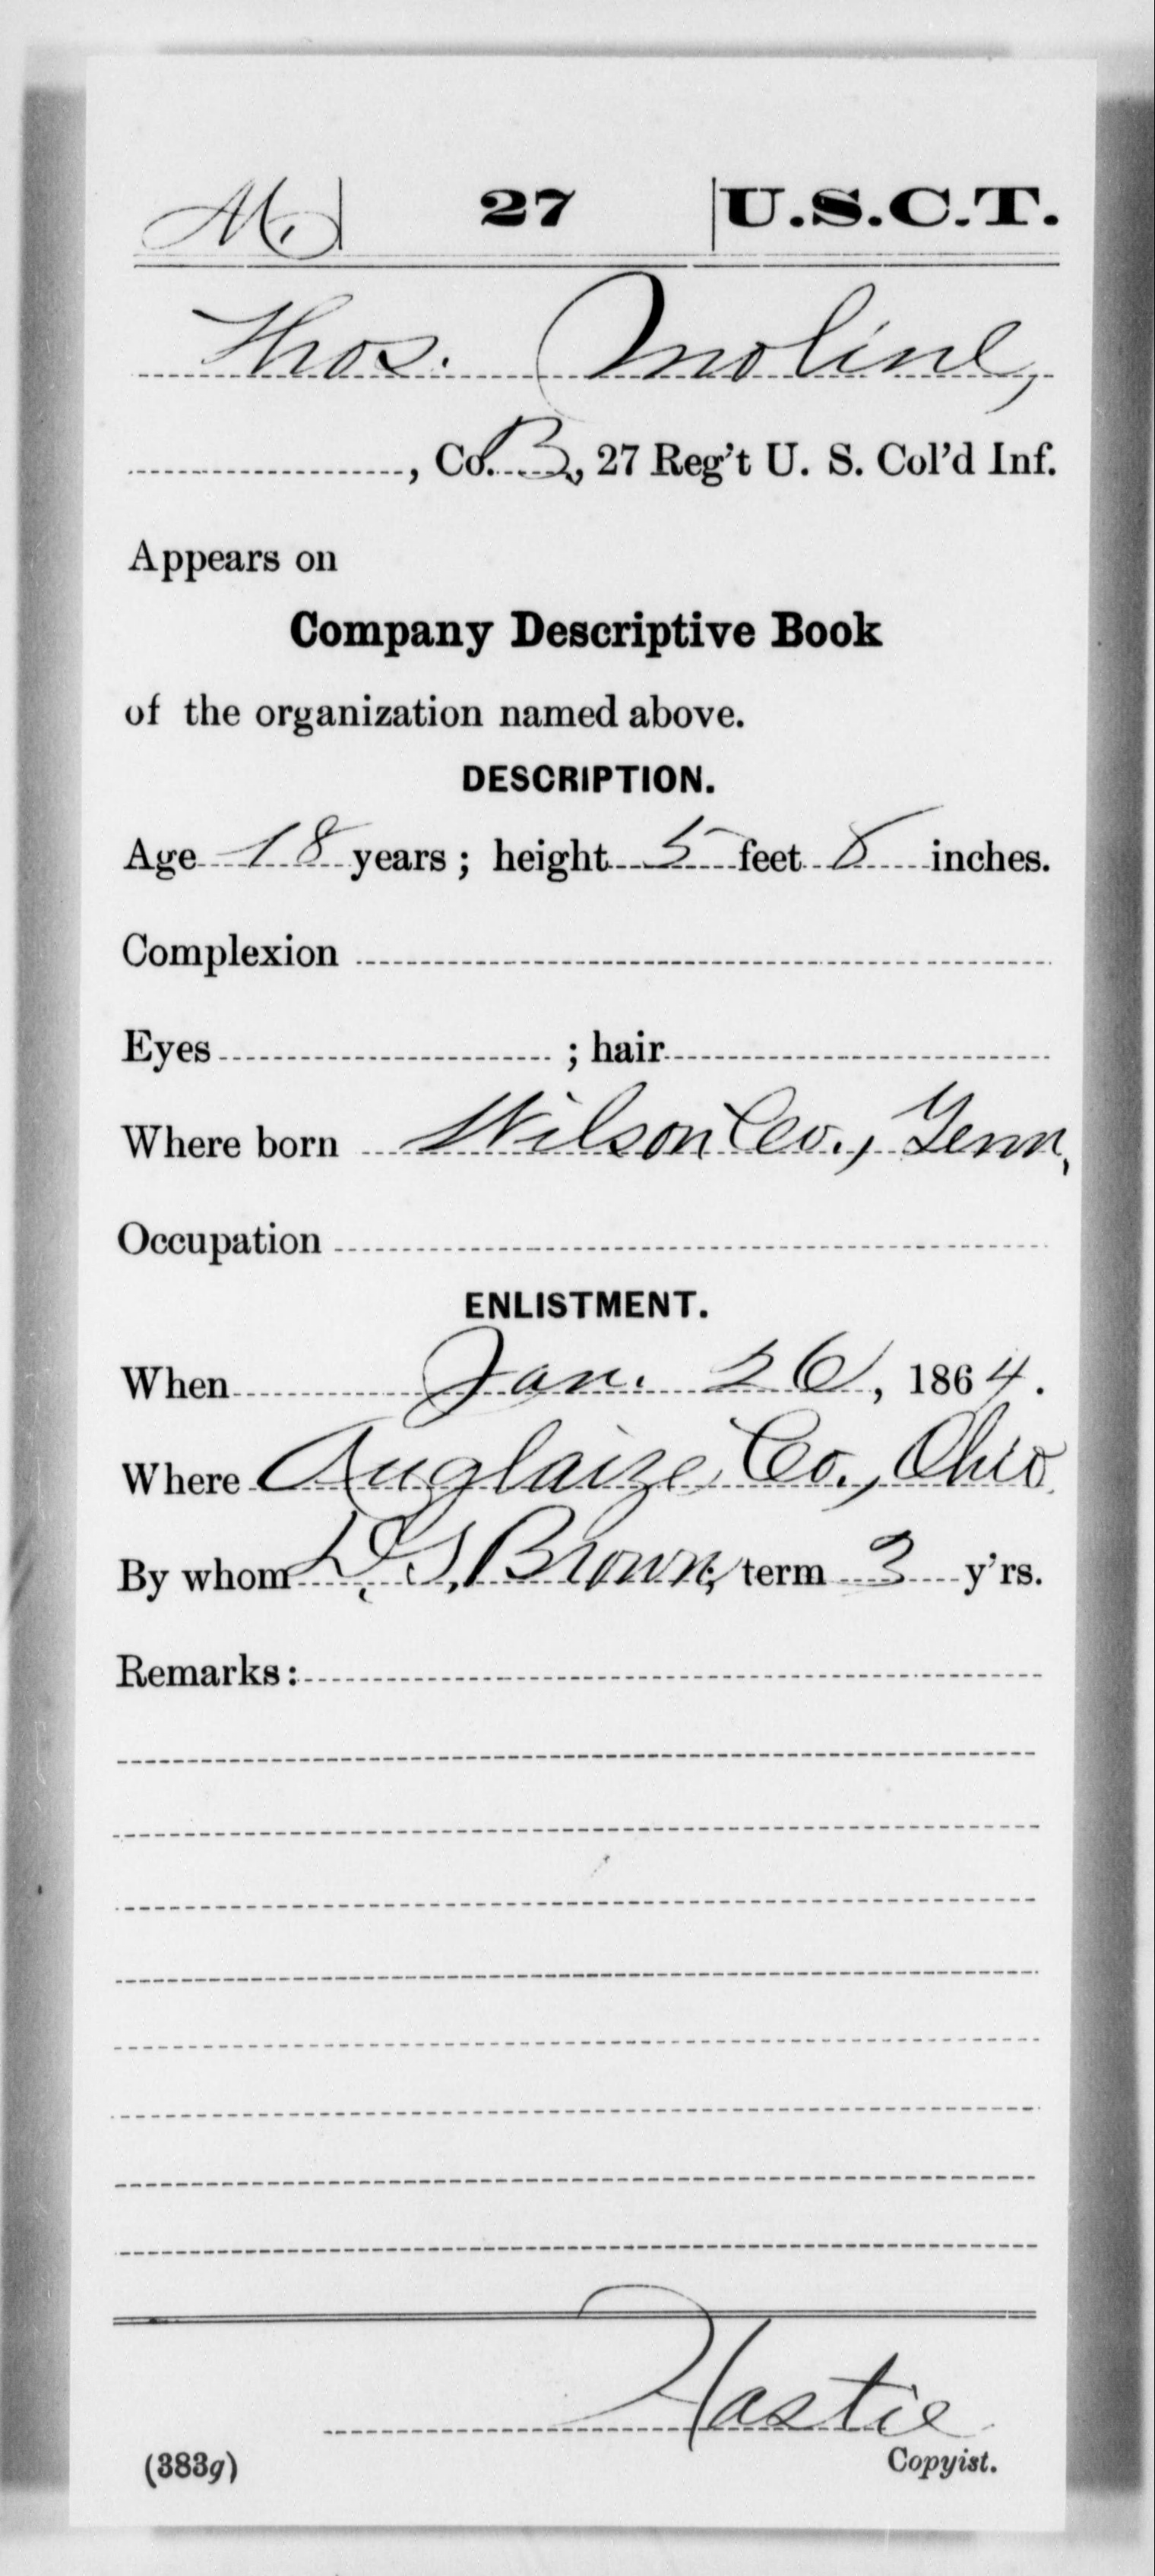 M | 27 | U.S.C.T.
Thos. Moline,
, Co. B, 27 Reg't U. S. Col'd Inf.
Appears on
Company Descriptive Book
of the organization named above.
DESCRIPTION.
Age 18 years; height 5 feet 8 inches.
Complexion
Eyes ; hair
Where born Wilson Co., Tenn,
Occupation
ENLISTMENT.
When Jan. 26, 1864.
Where Auglaize Co., Ohio.
By whom D. S. Brown; term 3 y'rs.
Remarks:
Hastie
(383g) Copyist.